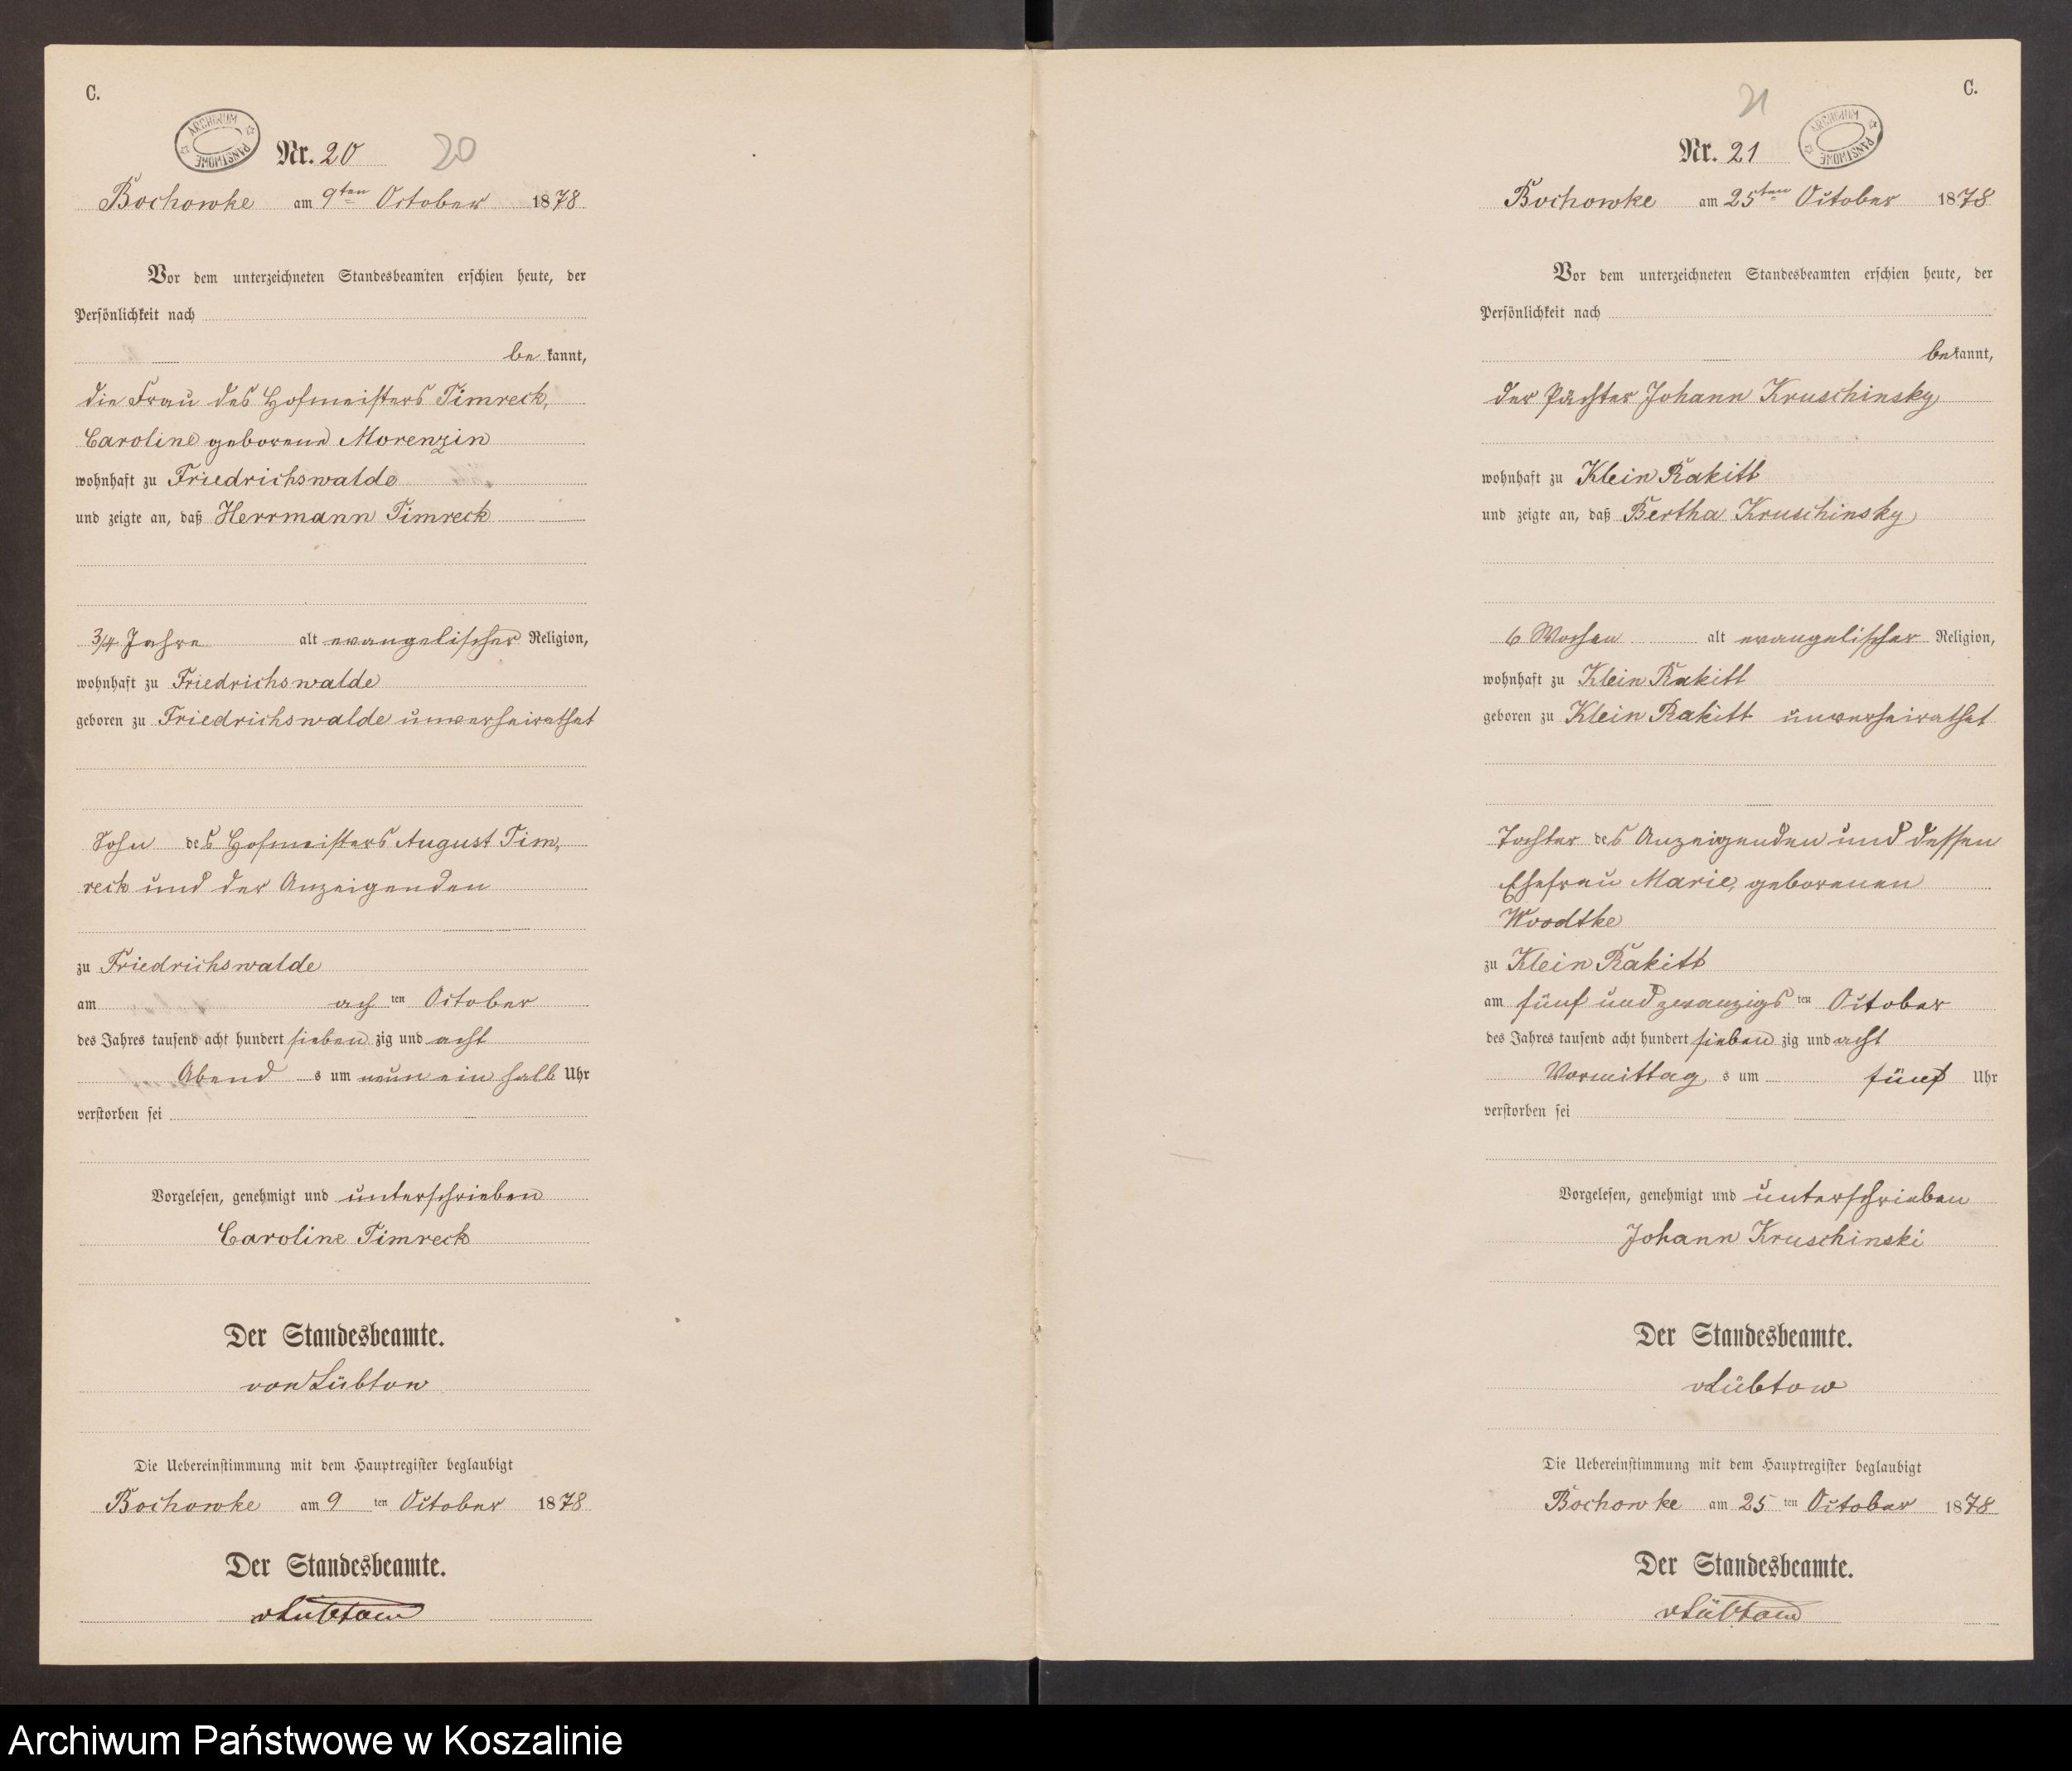 C.
ARCHIWUM PAŃSTWOWE
Nr. 20 20
Bochowke am 9ten October 1878
Vor dem unterzeichneten Standesbeamten erschien heute, der
Persönlichkeit nach
be kannt,
die Frau des Hofmeisters Timreck,
Caroline geborene Morenzin
wohnhaft zu Friedrichswalde
und zeigte an, daß Herrmann Timreck
3/4 Jahre alt evangelischer Religion,
wohnhaft zu Friedrichswalde
geboren zu Friedrichswalde unverheirathet
Sohn des Hofmeisters August Tim,
reck und der Anzeigenden
zu Friedrichswalde
am ach ten October
des Jahres tausend acht hundert sieben zig und acht
Abend s um neun ein halb Uhr
verstorben sei
Vorgelesen, genehmigt und unterschrieben
Caroline Timreck
Der Standesbeamte.
von Lübtow
Die Uebereinstimmung mit dem Hauptregister beglaubigt
Bochowke am 9 ten October 1878
Der Standesbeamte.
vLübtow
C.
21
Nr. 21
ARCHIWUM PAŃSTWOWE
Bochowke am 25ten October 1878
Vor dem unterzeichneten Standesbeamten erschien heute, der
Persönlichkeit nach
bekannt,
der Pächter Johann Kruschinsky
wohnhaft zu Klein Rakitt
und zeigte an, daß Bertha Kruschinsky
6 Wochen alt evangelischer Religion,
wohnhaft zu Klein Rakitt
geboren zu Klein Rakitt unverheirathet
Tochter des Anzeigenden und dessen
Ehefrau Marie, geborenen
Woodtke
zu Klein Rakitt
am fünf und zwanzigs ten October
des Jahres tausend acht hundert sieben zig und acht
Vormittag s um fünf Uhr
verstorben sei
Vorgelesen, genehmigt und unterschrieben
Johann Kruschinski
Der Standesbeamte.
vLübtow
Die Uebereinstimmung mit dem Hauptregister beglaubigt
Bochowke am 25 ten October 1878
Der Standesbeamte.
vLübtow
Archiwum Państwowe w Koszalinie